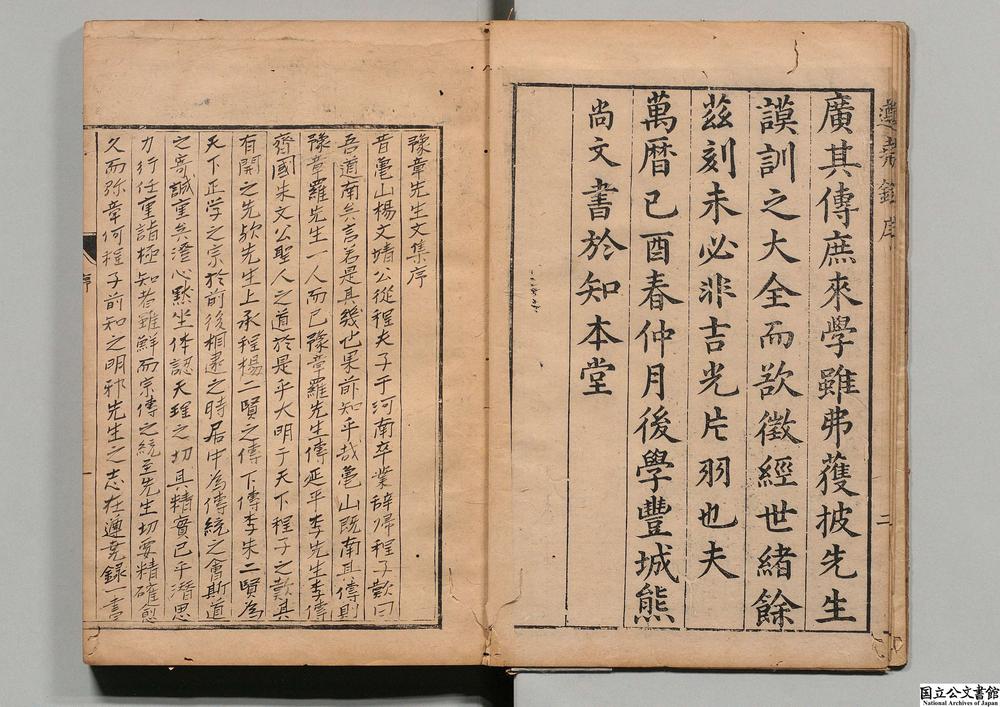 遵堯錄序
二
廣其傳庶來學雖弗獲披先生
謨訓之大全而欲徵經世緒餘
茲刻未必非吉光片羽也夫
萬曆己酉春仲月後學豐城熊
尚文書於知本堂
豫章先生文集序
昔亀山楊文靖公從程夫子于河南卒業辞歸程子歎曰
吾道南矣言若是其幾也果前知乎哉亀山既南其傳則
豫章羅先生一人而已豫章羅先生傳延平李先生李傳
齊國朱文公聖人之道於是乎大明于天下程子之歎其
有開之先欤先生上承程楊二賢之傳下傳李朱二賢為
天下正学之宗於前後相逮之時居中為傳統之會斯道
之寄誠重矣澄心默坐体認天理之切其精實已乎潛思
力行任重詣極知者雖鮮而宗傳之統至先生切要精確愈
久而弥章何程子前知之明邪先生之志在遵堯録一書
序
一
国立公文書館
National Archives of Japan